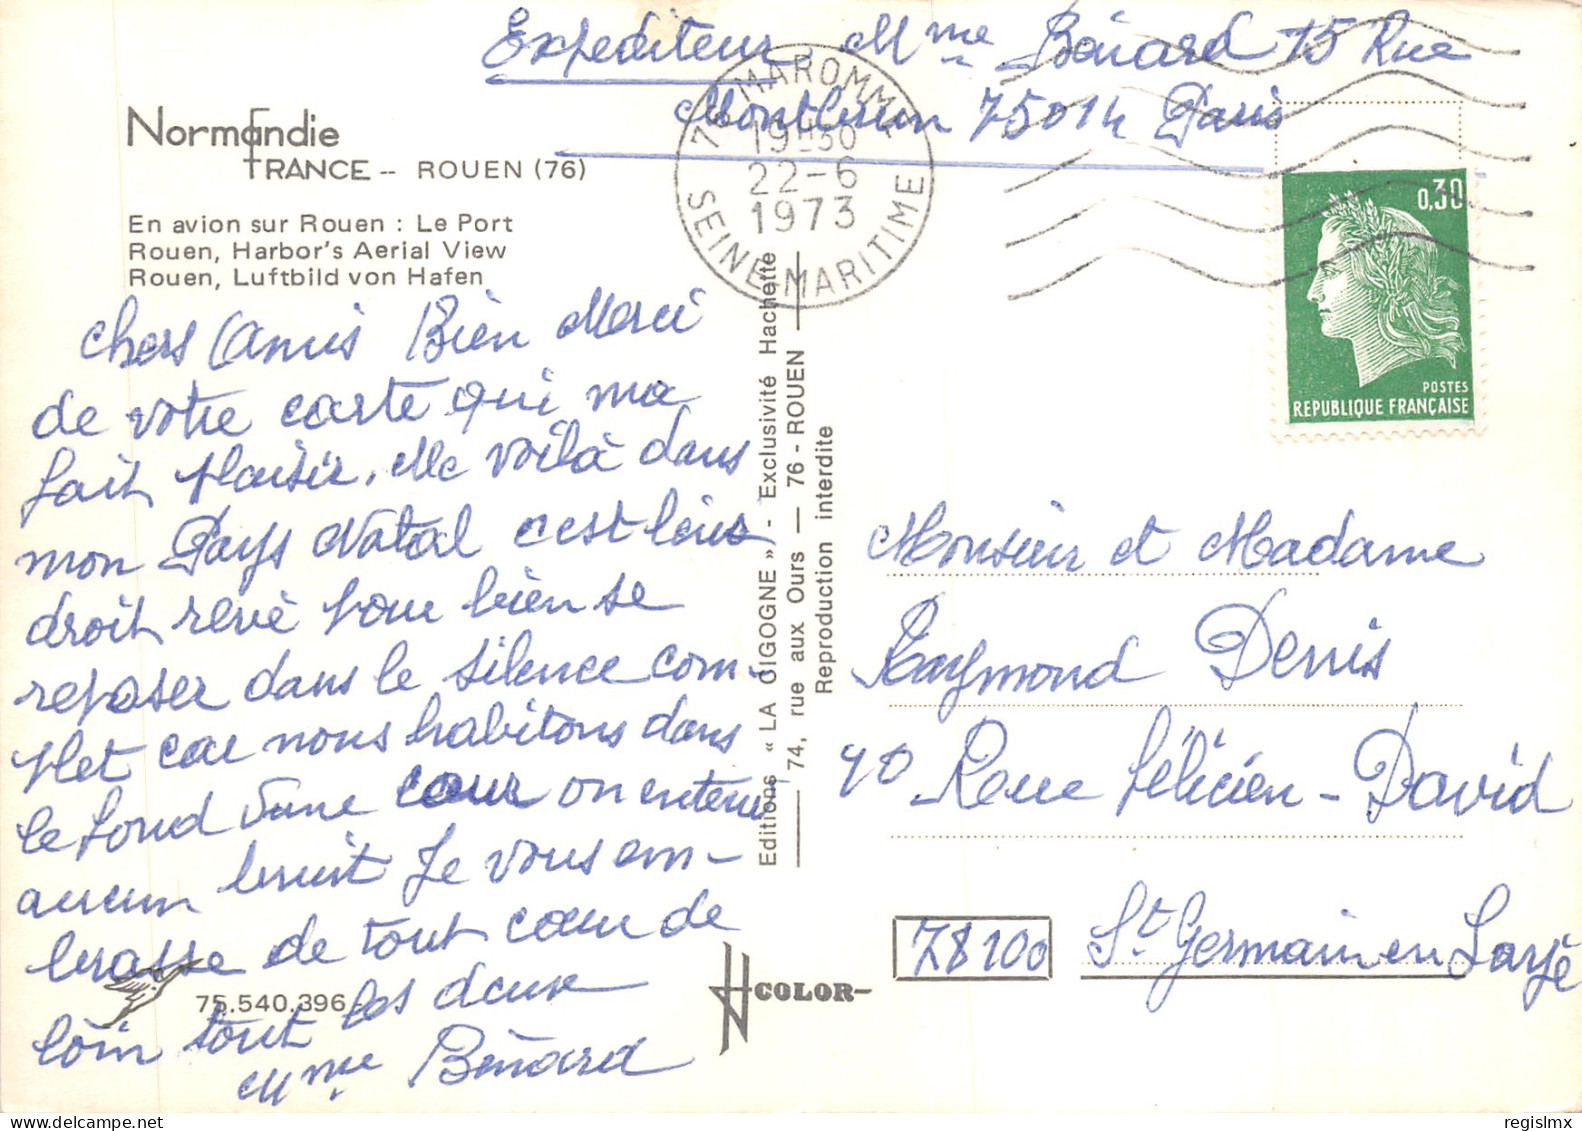 Expediteur, Mme Bénard 15 Rue
Montbrun 75014 Paris
Normandie
FRANCE -- ROUEN (76)
En avion sur Rouen : Le Port
Rouen, Harbor's Aerial View
Rouen, Luftbild von Hafen
76 MAROMME
19H30
22-6
1973
SEINE-MARITIME
0,30
POSTES
REPUBLIQUE FRANÇAISE
chers Amis Bien Merci
de votre carte qui ma
fait plaisir. Me voilà dans
mon Pays Natal c'est bien
droit revé pour bien se
reposer dans le silence com-
plet car nous habitons dans
le fond d'une cour on entend
aucun bruit Je vous em-
brasse de tout cœur de
loin tout les deux
Mme Bénard
75.540.396
Editions « LA CIGOGNE » - Exclusivité Hachette
74, rue aux Ours — 76 - ROUEN
Reproduction interdite
COLOR
Monsieur et Madame
Raymond Denis
90 Rue Félicien-David
78100 St Germain en Laye
regislmx